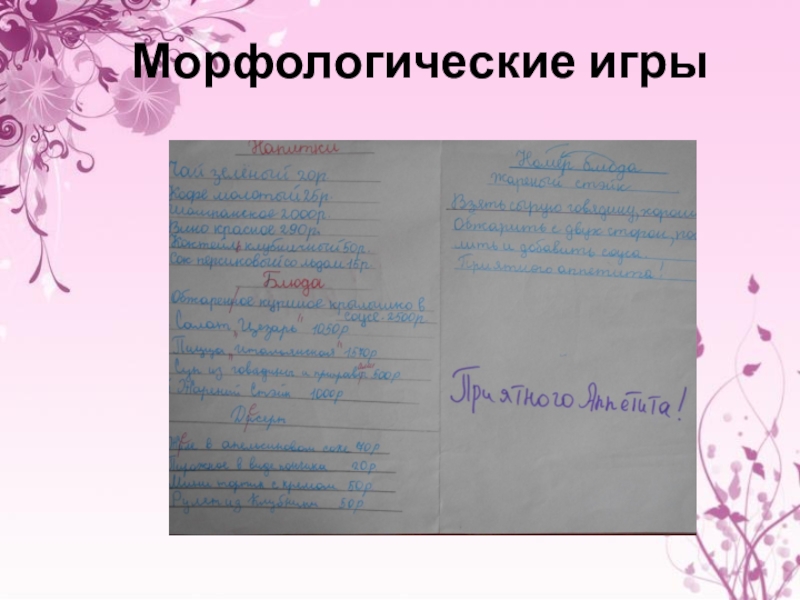 Морфологические игры
Напитки
Чай зеленый 20р.
Кофе молотый 25р.
Шампанское 2000р.
Вино красное 290р.
Коктейль клубничный 50р.
Сок персиковый со льдом 15р.
Блюда
Обжаренное куриное крылышко в
соусе-2500р.
Салат "Цезарь" 1050р
Пицца "итальянская"
Суп из говядины и 500р
Жареный стэйк 1000р
в апельсиновом соке 40р
Пирожное в виде пончика 20р
Мини тортя с кремом 50р
из клубники 50р
Номер блюда
Жареный стэйк.
Взять сырую говядину, хорошо
Обжарить с двух сторон, по
лить и добавить соуса.
Приятного аппетита!
Приятного Аппетита!